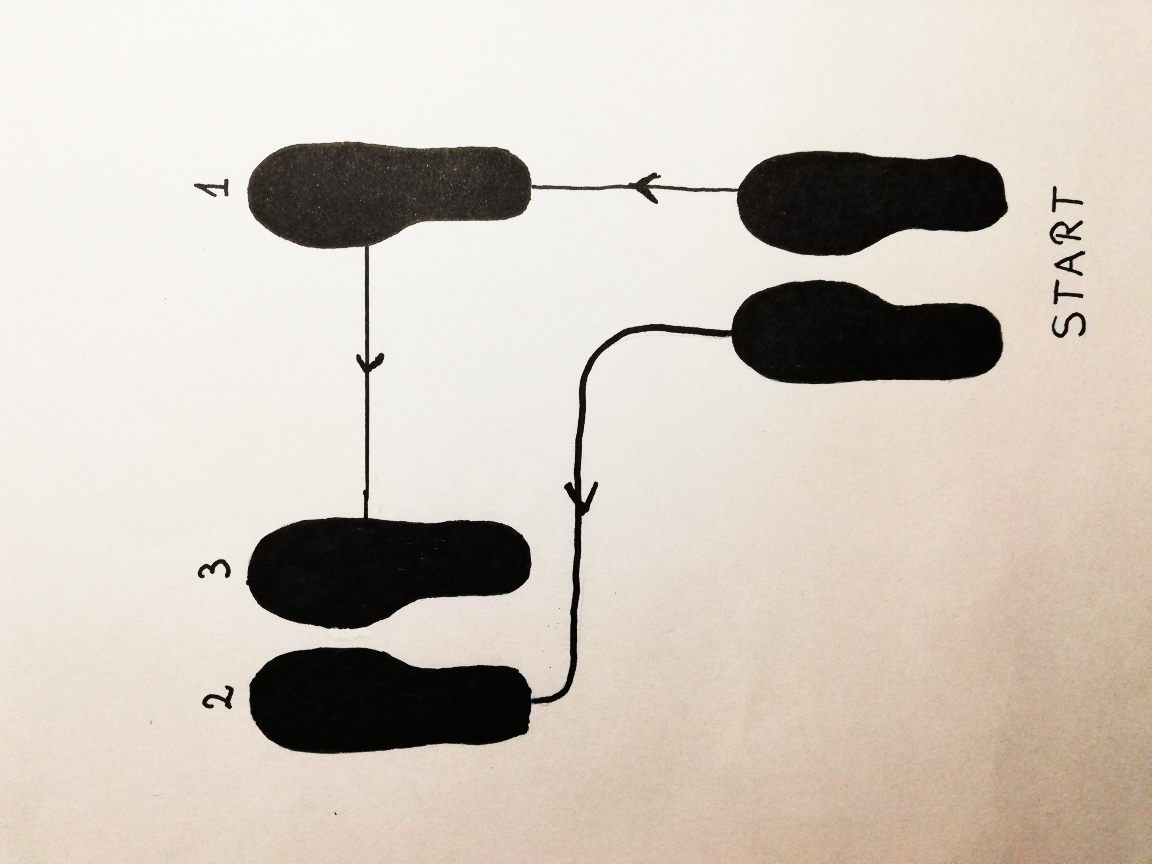 2 3 1
START